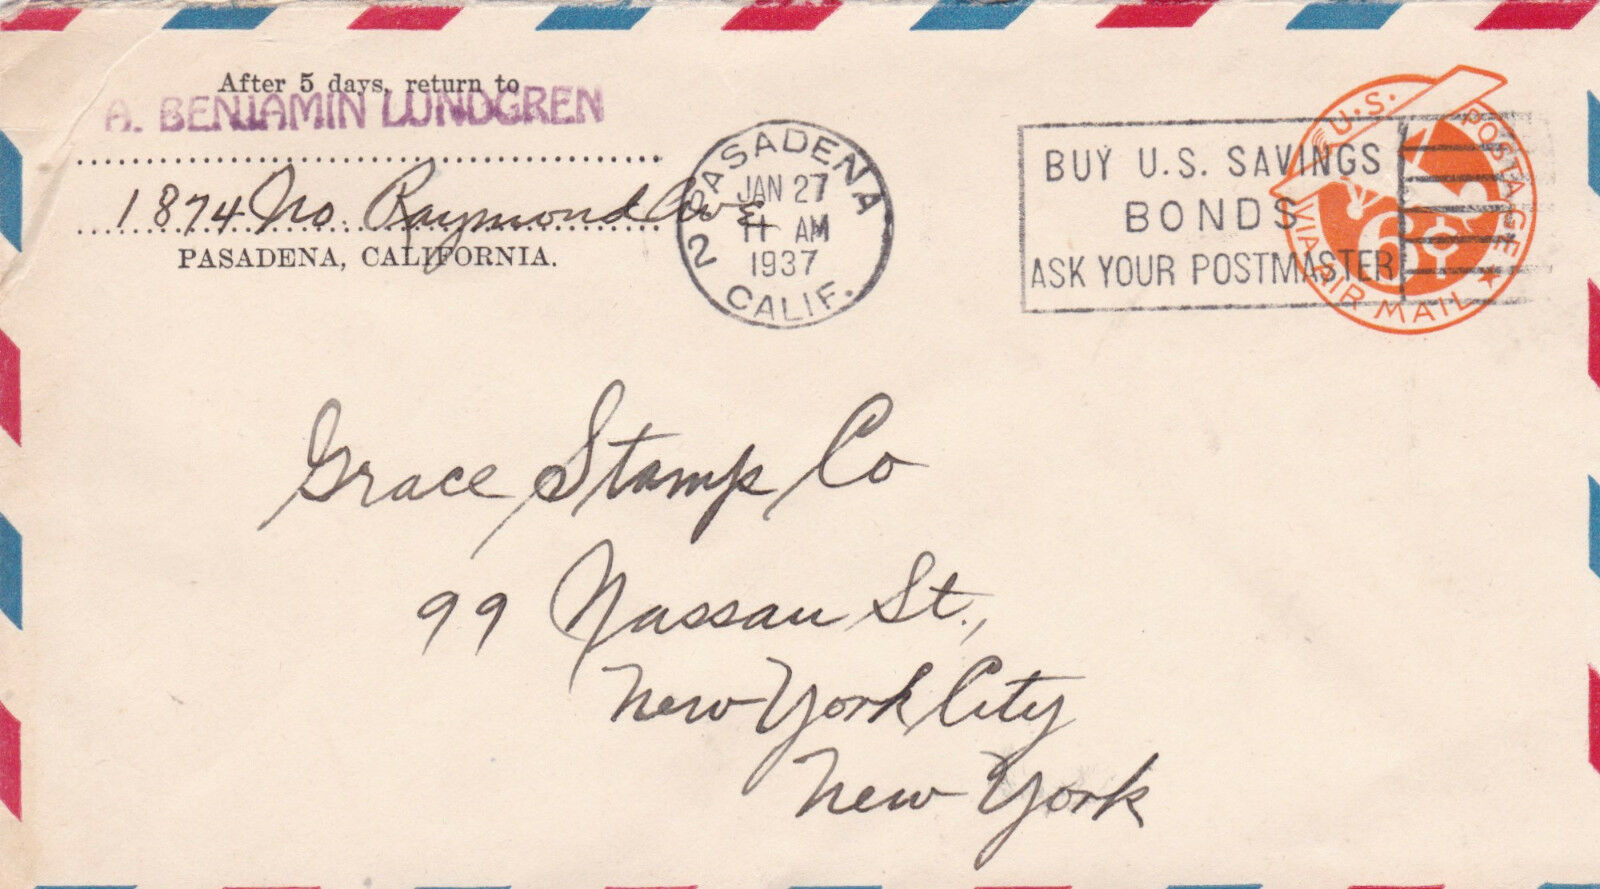 After 5 days, return to
A. BENJAMIN LUNDGREN
1874 No. Raymond Ave
PASADENA, CALIFORNIA.
PASADENA 2 CALIF.
JAN 27
11 AM
1937
BUY U.S. SAVINGS
BONDS
ASK YOUR POSTMASTER
U.S. POSTAGE
6¢
VIA AIR MAIL
Grace Stamp Co
99 Nassau St.,
New York City
New York